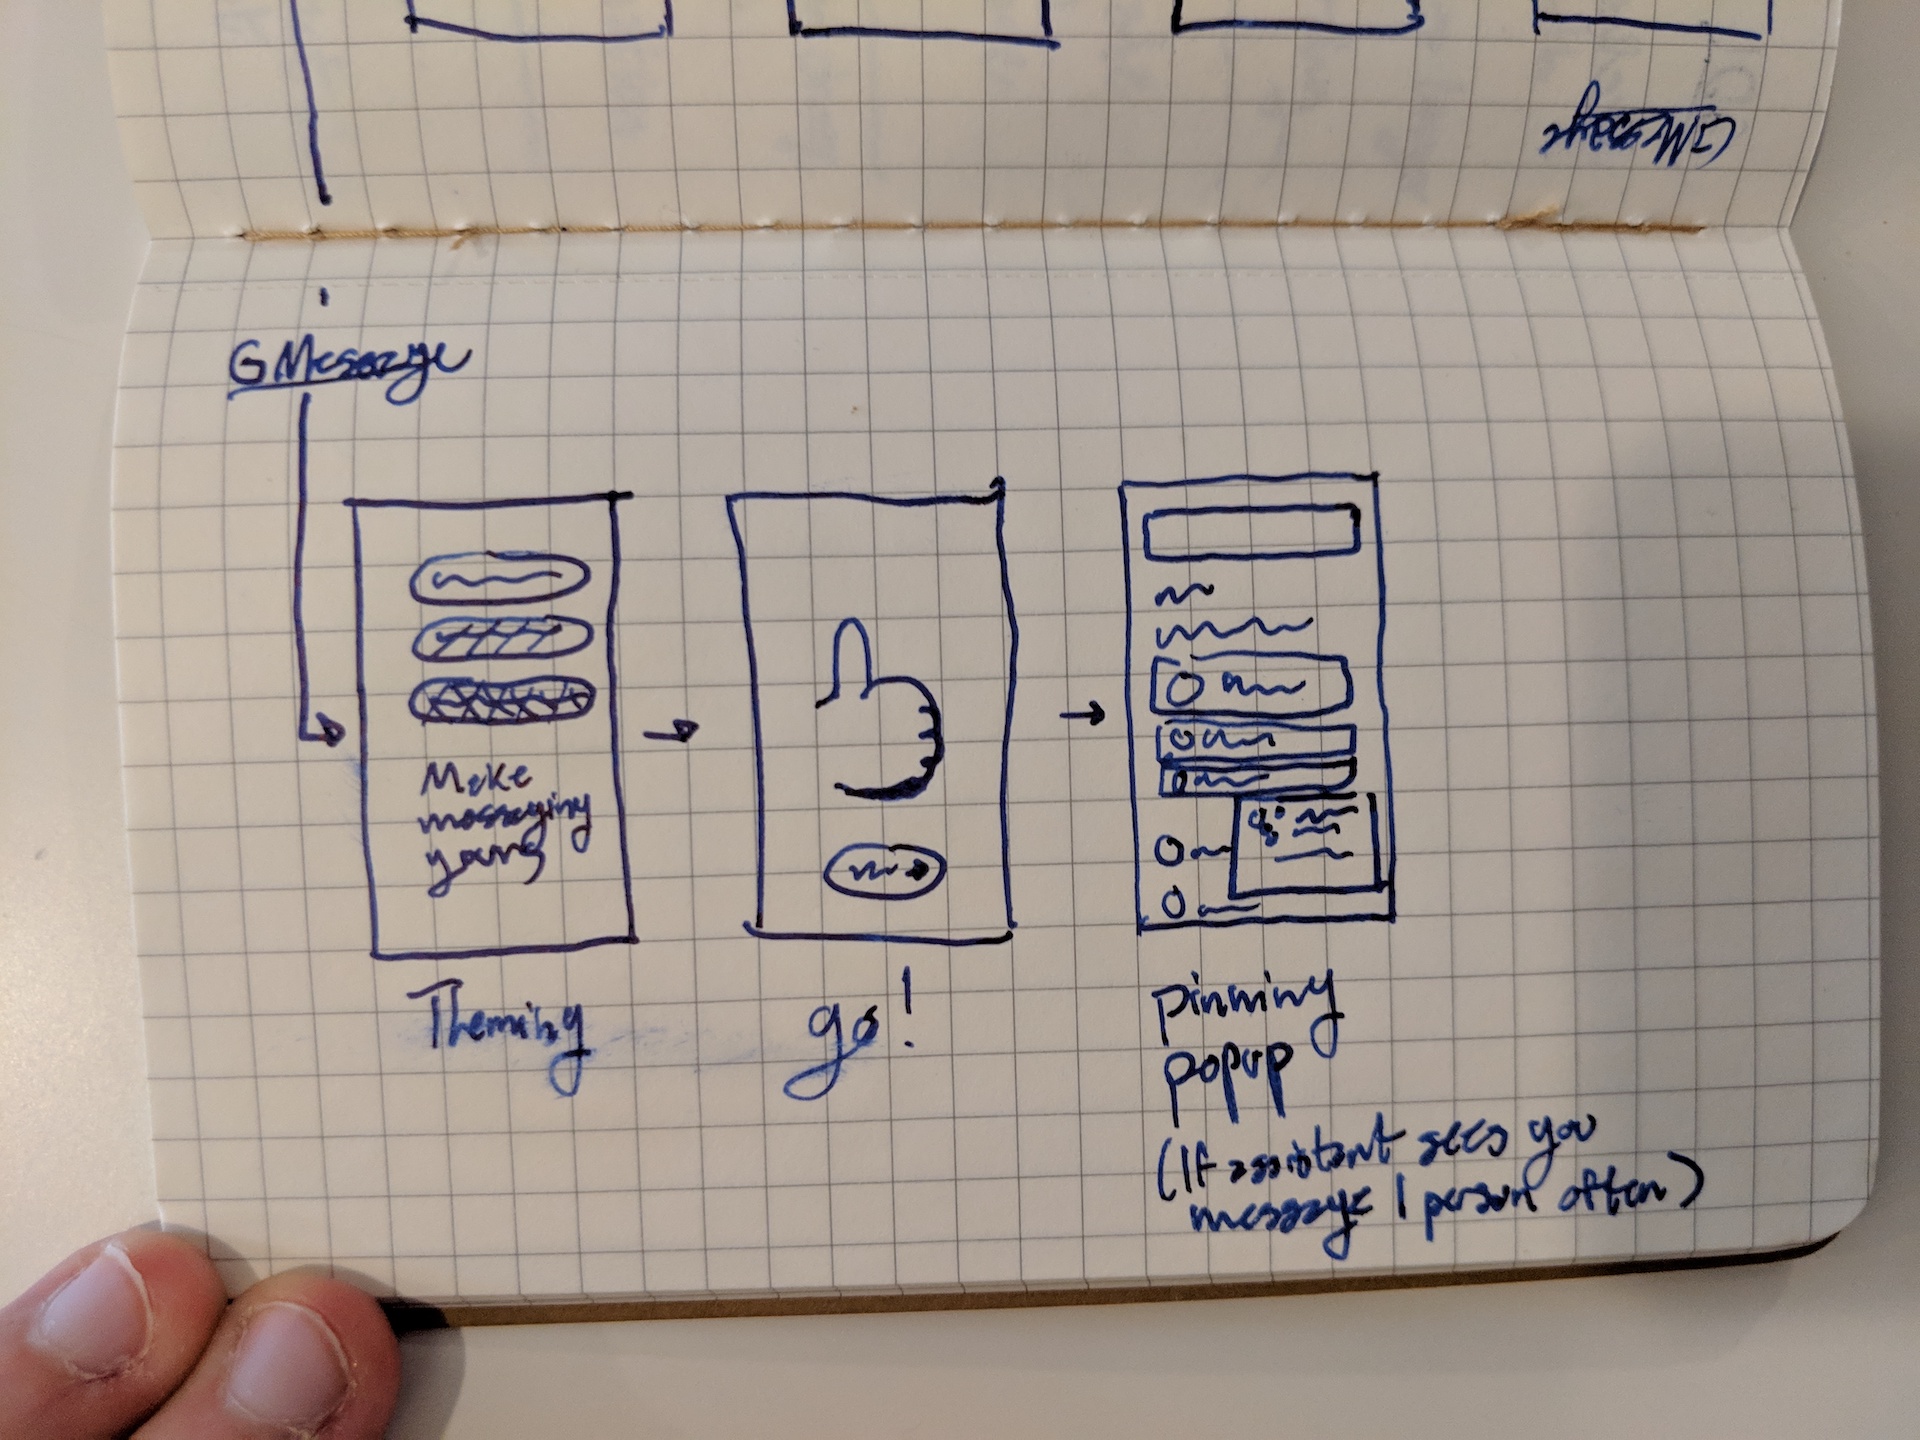 GMessage
GMessage
Make
messaging
yours
Theming
go!
pinning
popup
(If assistant sees you
message 1 person often)